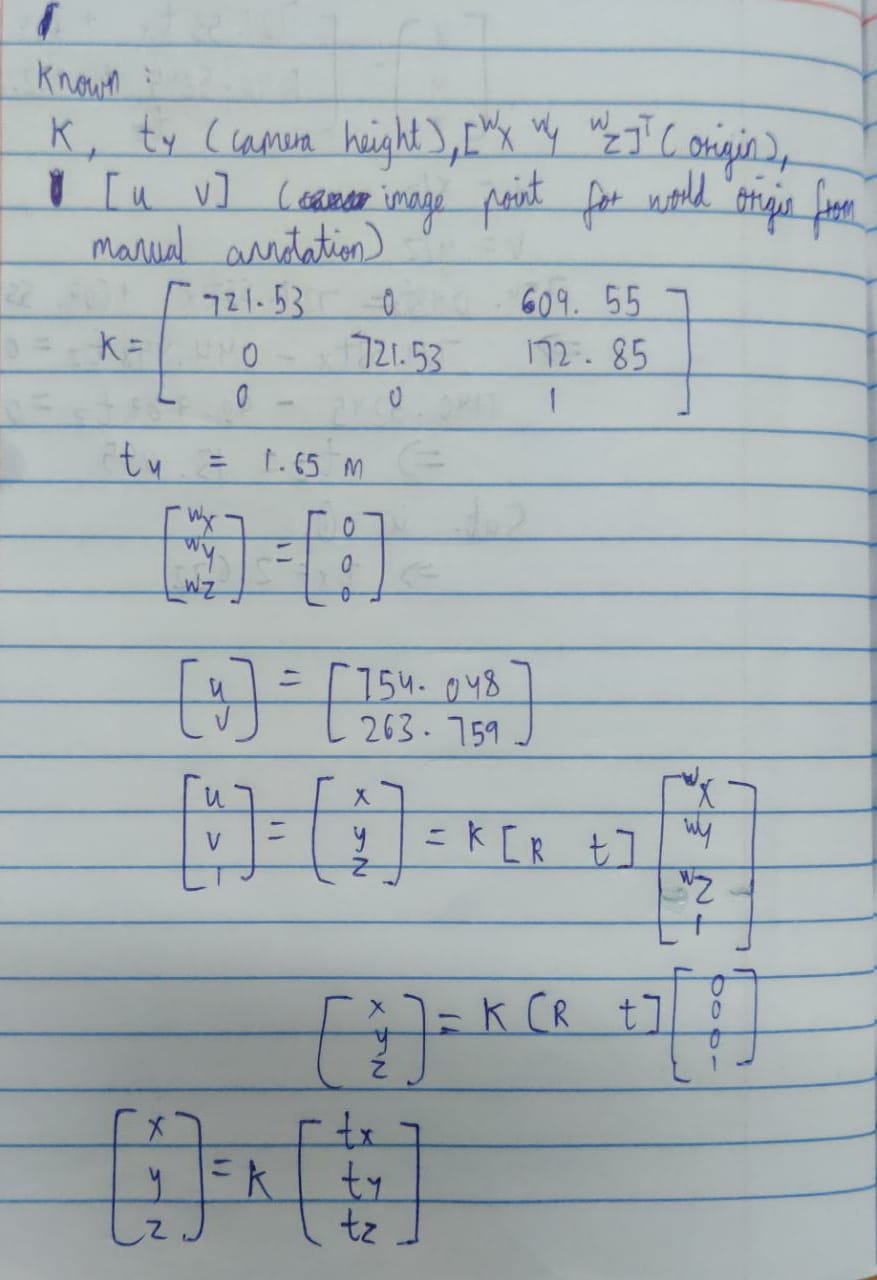 Known :
K, ty (camera height), [ᵂX ᵂY ᵂZ]ᵀ (origin),
[u v] (image point for world origin from
manual annotation)
K = [ 721.53 0 609.55
0 721.53 172.85
0 0 1 ]
ty = 1.65 m
[ ᵂX ᵂY ᵂZ ] = [ 0 0 0 ]
[ u v ] = [ 754.048 263.759 ]
[ u v 1 ] = [ x y z ] = K [R t] [ ᵂX ᵂY ᵂZ 1 ]
[ x y z ] = K [R t] [ 0 0 0 1 ]
[ x y z ] = K [ tx ty tz ]